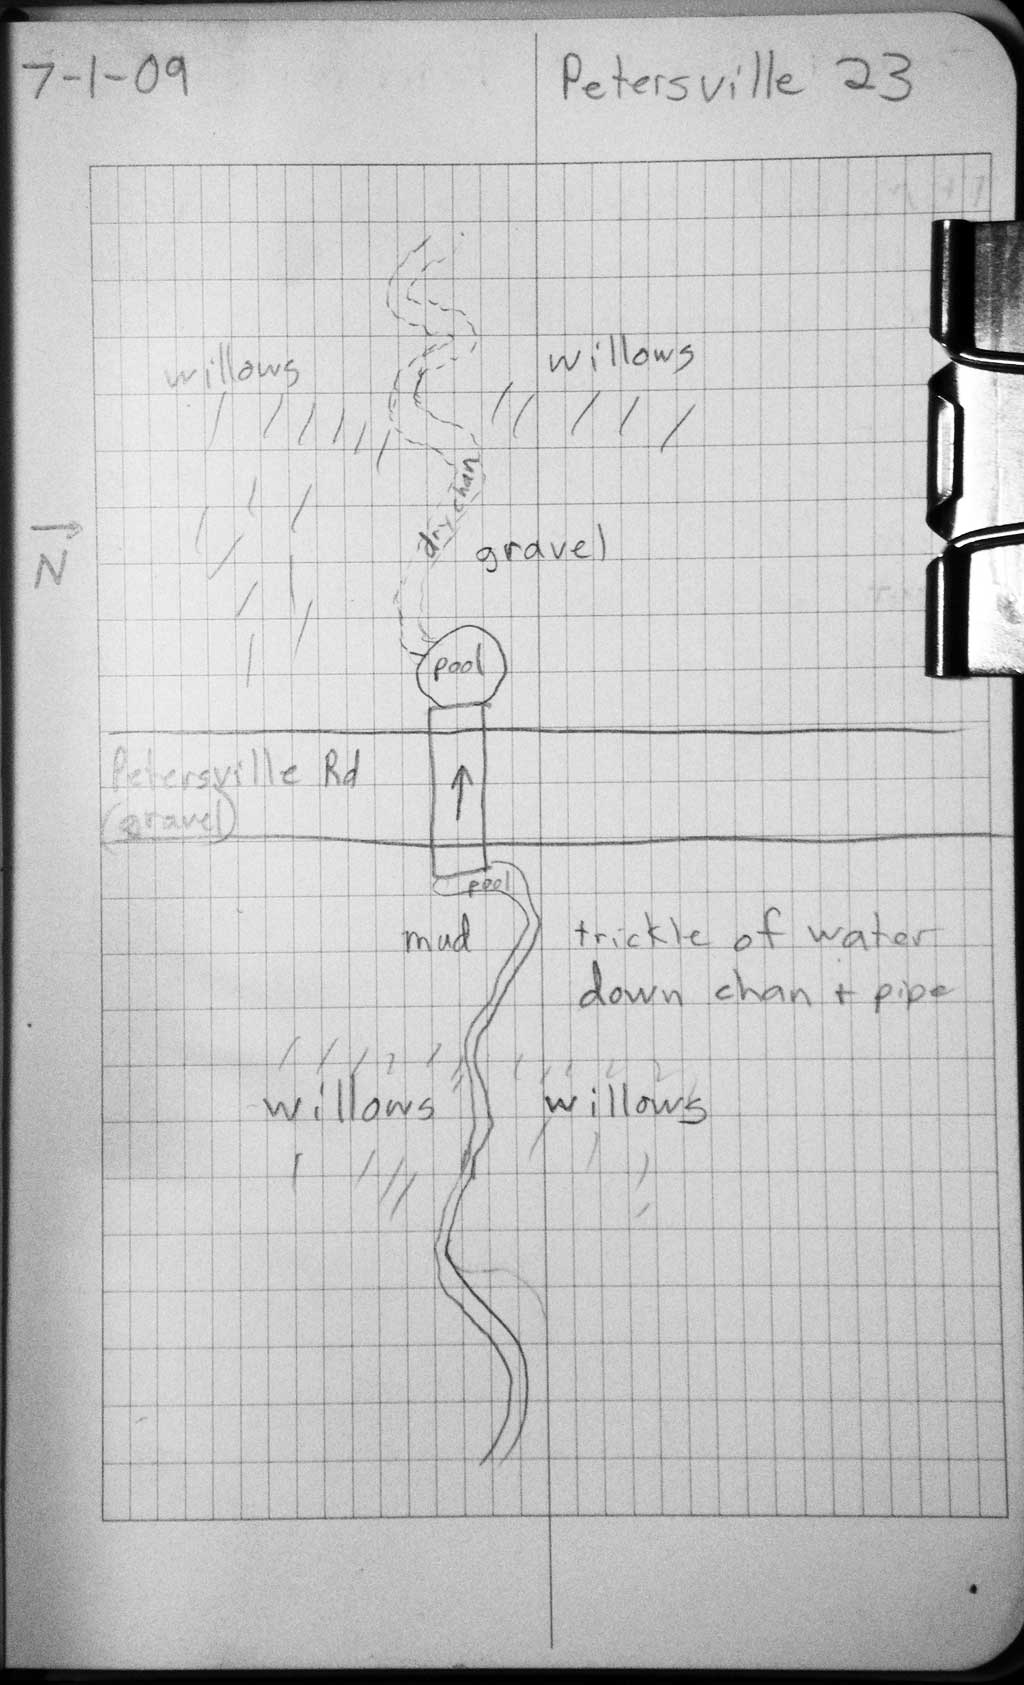 7-1-09
Petersville 23
willows
willows
dry chan
gravel
N
pool
Petersville Rd
(gravel)
pool
mud
trickle of water
down chan + pipe
willows
willows